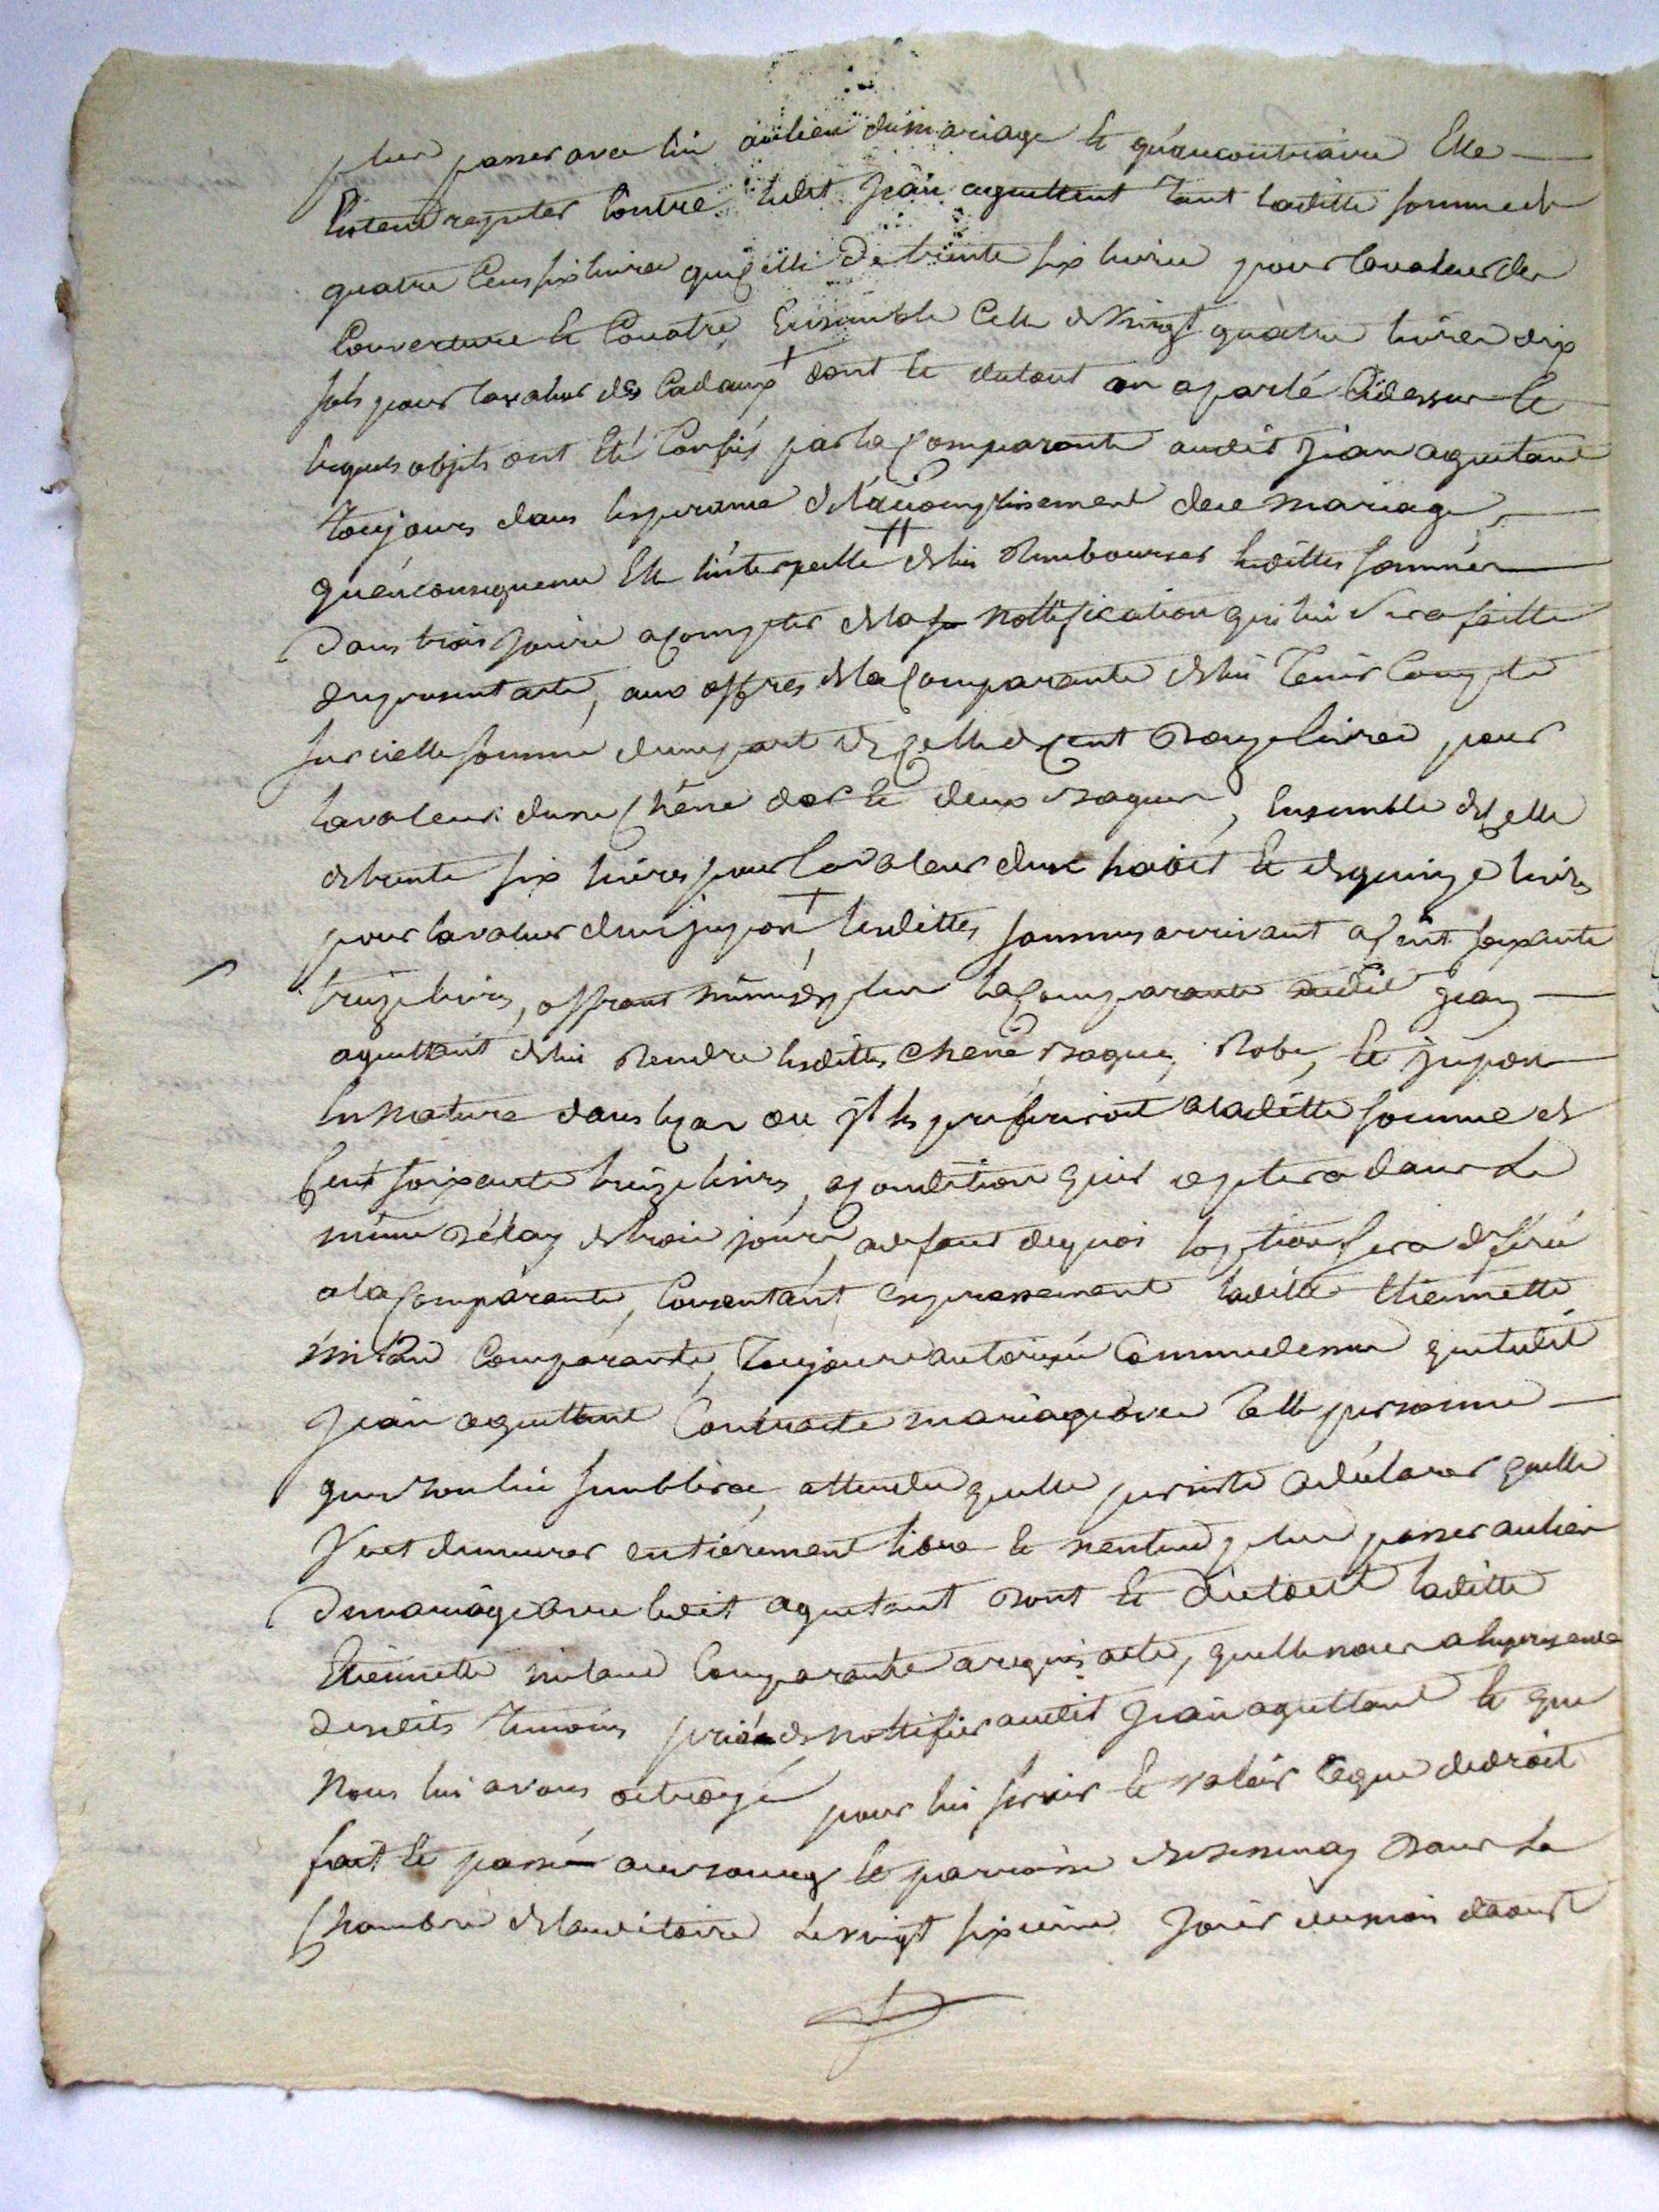 plus passer avec lui au lieu du mariage & qu'au contraire Elle
Entend repeter Contre ledit Jean aguettant tant laditte somme de
quatre Cens six livres que celle de trente six livres pour la valeur des
Couverture & Couatre, Ensemble Celle de vingt quatre livres dix
sols pour la valeur des Cadaux + dont & du tout on a parlé Cidessus &
lequels objets ont Eté Confiés par la Comparante audit Jean aguetant
toujours dans l'esperance de l'accomplissement de ce mariage,
qu'en consequence Elle l'interpelle # de lui Rembourser lesdittes sommes
dans trois jours a compter de la notiffication qui lui sera faitte
du present acte, aux offres de la Comparante de lui Tenir Compte
sur icelle somme d'une part de celle de cent douze livres pour
la valeur d'une chêne d'or & deux bagues, Ensemble de celle
de trente six livres pour la valeur d'un habit & de quinze livres
pour la valeur d'un jupon + lesdittes sommes arrivant a Cent soixante
treize livres, offrant même de plus la Comparante audit Jean
aguettant de lui Rendre lesdittes chene, bagues, Robe, & jupon
En Nature dans le cas ou il les prefereroit a laditte somme de
Cent soixante treize livres, a condition qu'il optera dans le
même délay de trois jours, a defaut de quoi l'option sera déféré
a la Comparante, Consentant expressement laditte Etiennette
Comparante, toujours autorisée Comme dessus que ledit
Jean aguettant Contracte mariage avec telle personne
que bon lui semblera, attendu qu'elle persiste a déclarer qu'elle
veut demeurer entierement libre & n'entend plus passer au lieu
du mariage avec ledit aguetant dont & du tout laditte
Etiennette Comparante a requis acte, qu'elle nous a En presence
desdits temoins prié de nottifier audit Jean aguettant & que
Nous lui avons octroyé pour lui servir & valoir Ce que de droit
fait & passé au bourg & parroisse de dans la
Chambre de l'auditoire Le vingt sixieme Jour du mois d'aoust